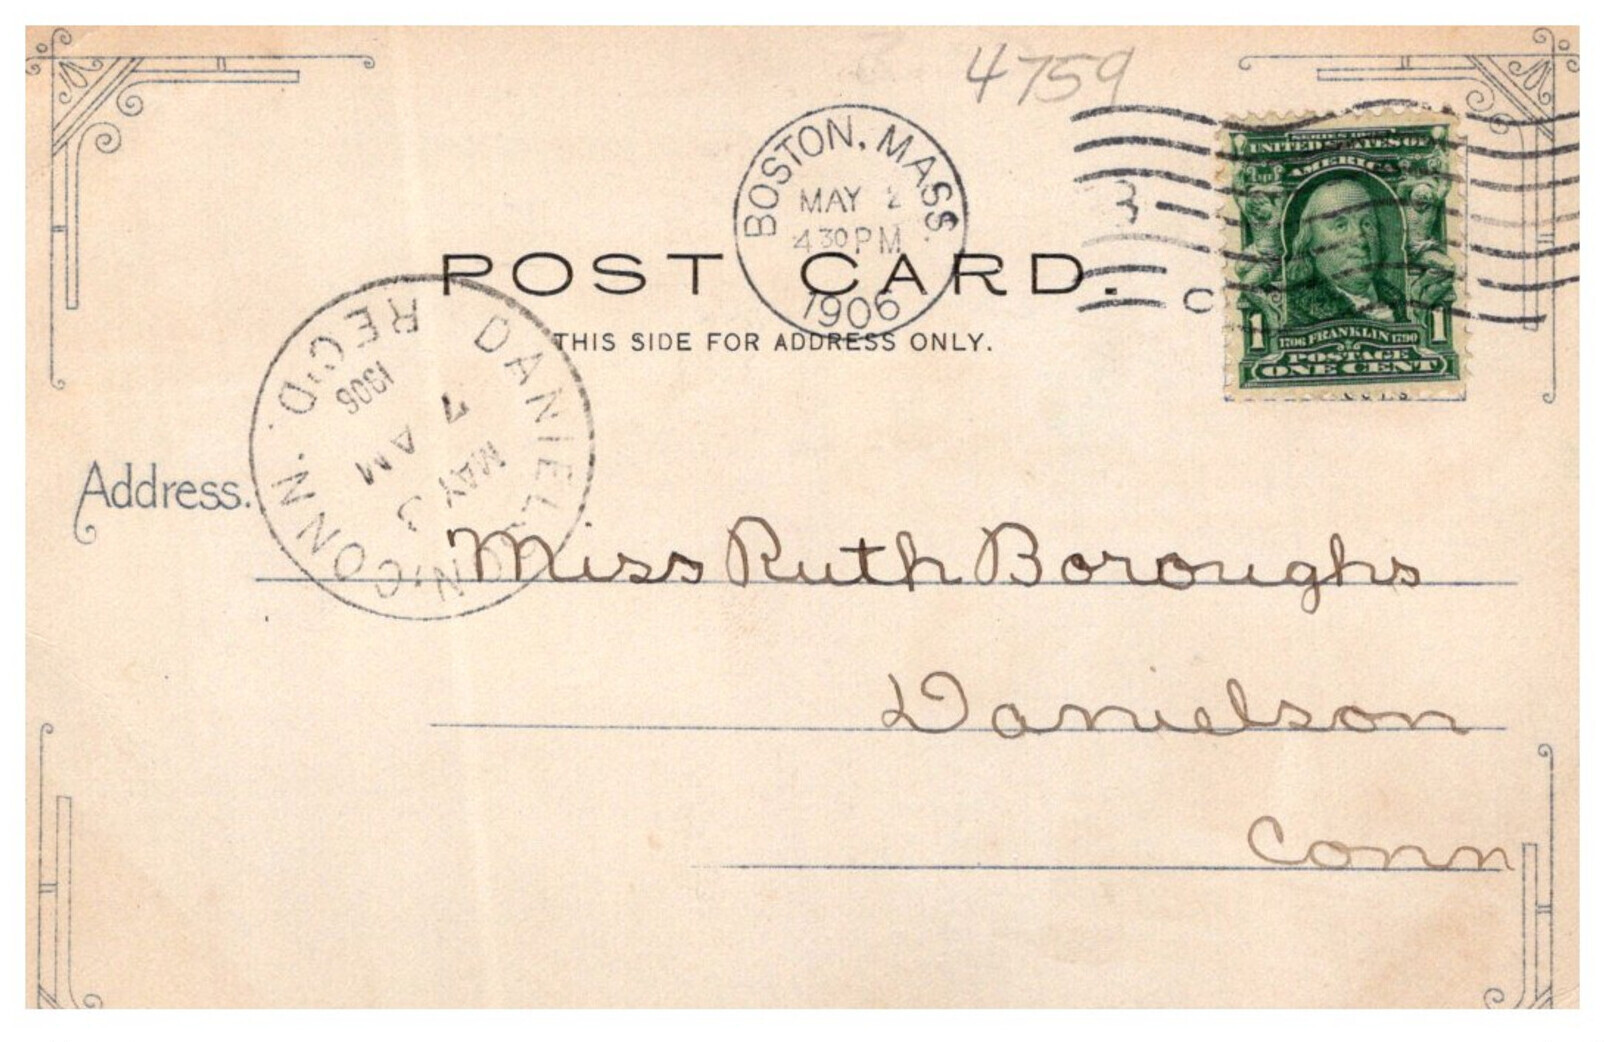 4759
BOSTON, MASS.
MAY 2
4 30 PM
1906
3
C
SERIES 1902
UNITED STATES OF
AMERICA
1706 FRANKLIN 1790
1 1
POSTAGE
ONE CENT
POST CARD.
THIS SIDE FOR ADDRESS ONLY.
DANIELSON, CONN.
REC'D.
MAY 3
7 AM
1906
Address.
Miss Ruth Boroughs
Danielson
Conn